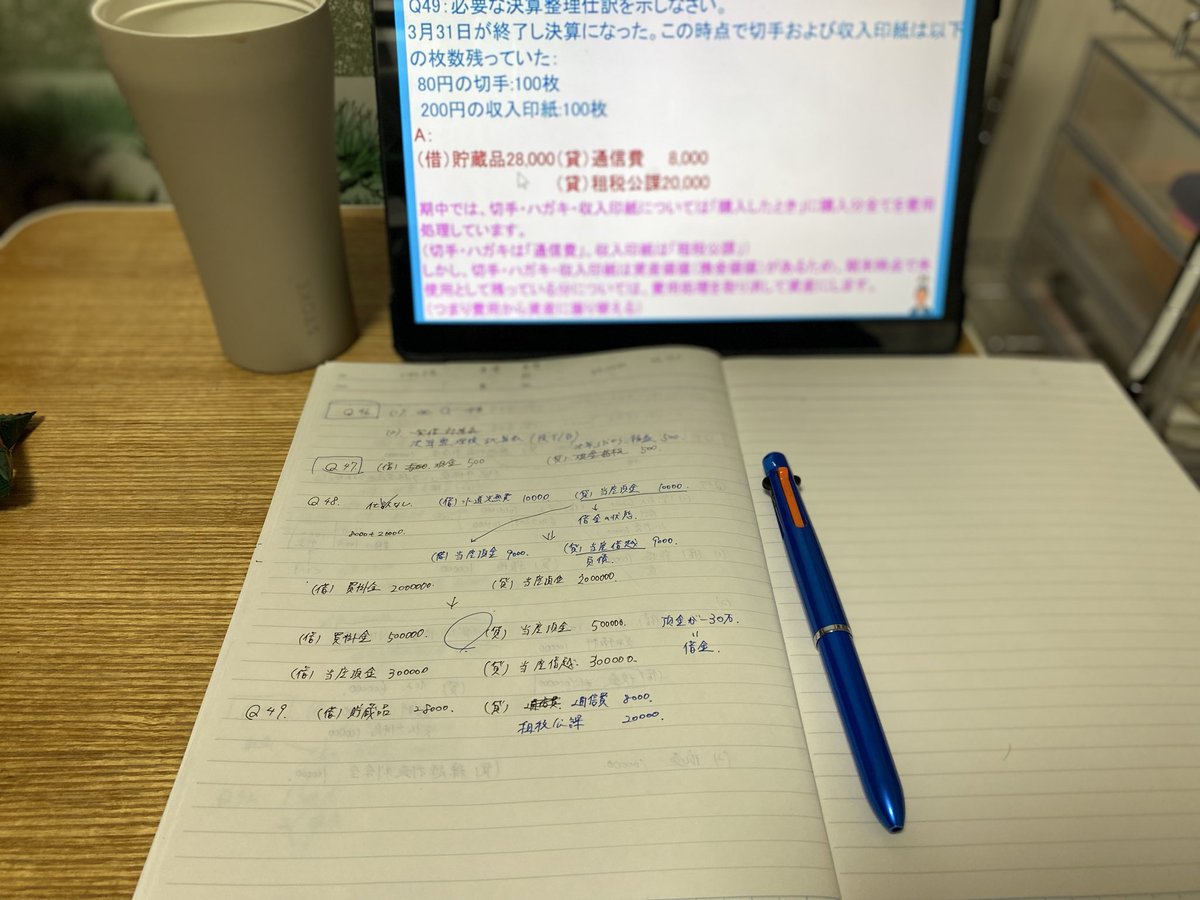 Q49:必要な決算整理仕訳を示しなさい。
3月31日が終了し決算になった。この時点で切手および収入印紙は以下
の枚数残っていた:
80円の切手:100枚
200円の収入印紙:100枚
A:
(借)貯蔵品28,000(貸)通信費 8,000
(貸)租税公課20,000
期中では、切手・ハガキ・収入印紙については「購入したとき」に購入分全てを費用
処理しています。
(切手・ハガキは「通信費」、収入印紙は「租税公課」)
しかし、切手・ハガキ・収入印紙は資産価値(換金価値)があるため、期末時点で未
使用として残っている分については、費用処理を取り消して資産にします。
(つまり費用から資産に振り替える)
Q46
Q47 (借) 現金 500 (貸) 500.
Q48. 仕訳なし. (借) 10000 (貸) 当座預金 10000.
↓
借金の状態.
(借) 当座預金 9000. (貸) 当座借越 9000.
負債.
(借) 買掛金 2000000. (貸) 当座預金 2000000.
↓
(借) 買掛金 500000. (貸) 当座預金 500000. 預金が-30万.
借金.
(借) 当座預金 300000 (貸) 当座借越. 300000.
Q49. (借) 貯蔵品 28000. (貸) 通信費 8000.
租税公課 20000.